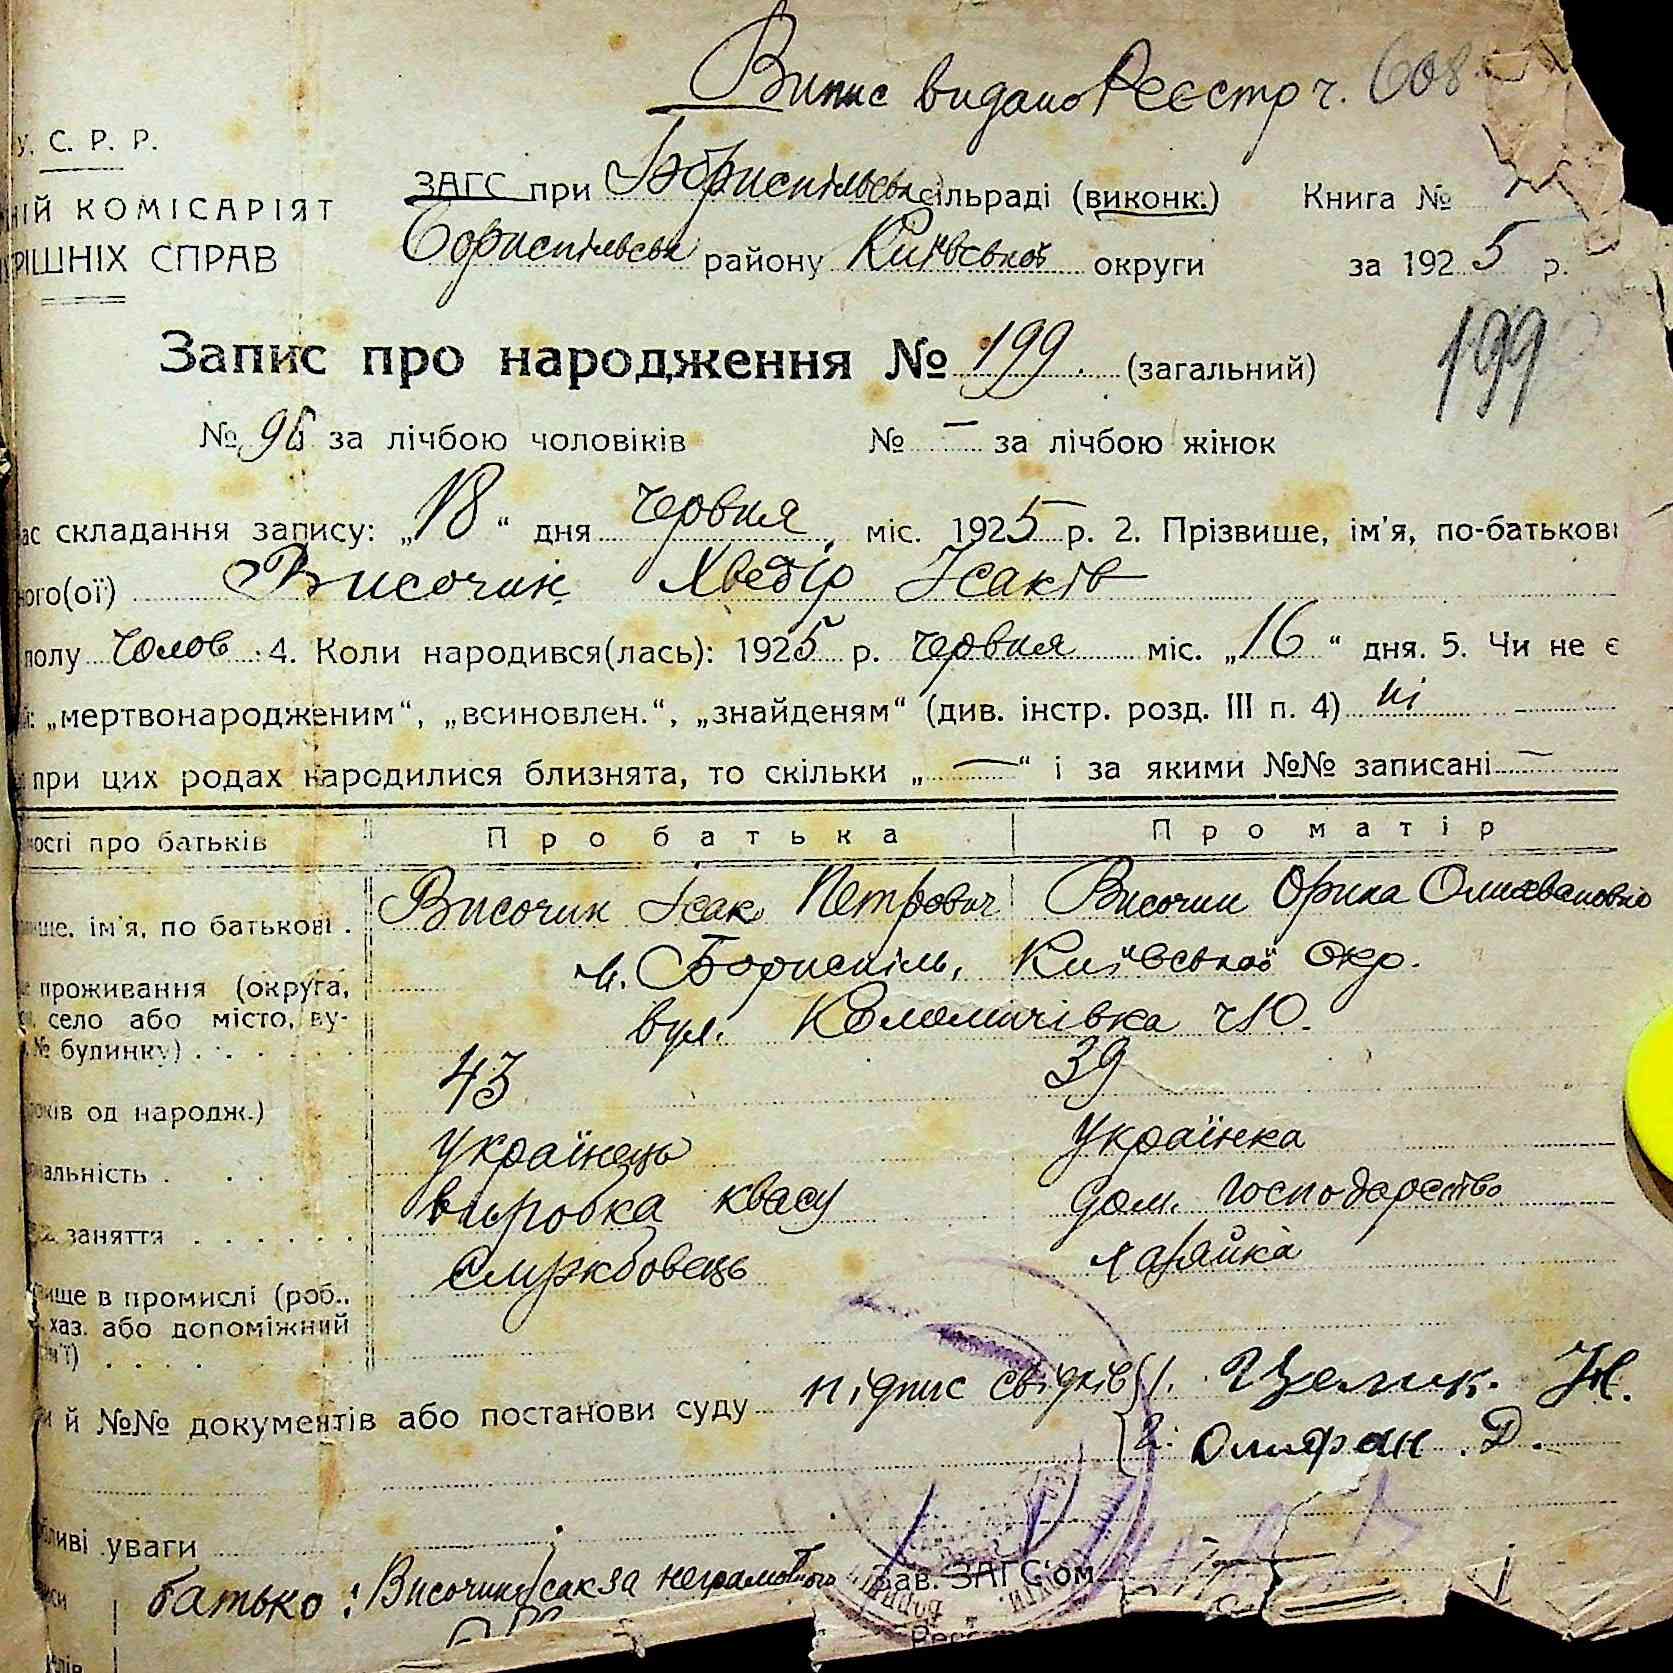 Випис видано Реєстр ч. 608
У. С. Р. Р.
ЗАГС при Бориспільськ сільраді (виконк.) Книга №
КОМІСАРІЯТ
Бориспільськ району Київської округи за 1925 р.
СПРАВ
Запис про народження № 199. (загальний) 199
№ 96 за лічбою чоловіків № — за лічбою жінок
складання запису: „18“ дня червня міс. 1925 р. 2. Прізвище, ім'я, по-батькові
ного(ої) Височин Хведір Ісаків
полу чолов. 4. Коли народився(лась): 1925 р. червня міс. „16“ дня. 5. Чи не є
„мертвонародженим“, „всиновлен.“, „знайденям“ (див. інстр. розд. III п. 4) ні
при цих родах народилися близнята, то скільки „—“ і за якими №№ записані —
ності про батьків Про батька Про матір
ім'я, по батькові . Височин Ісак Петрович Височин Орина
проживання (округа, м. Бориспіль, Київської окр.
село або місто, ву-
№ будинку) . . . . . вул. ч10.
років од народж.) 43 39
нальність . . . українець українка
заняття . . . . . . виробка квасу дом. господарство
вище в промислі (роб., службовець хазяйка
хаз. або допоміжний
сім'ї) . . . .
й №№ документів або постанови суду підпис свідків 1. Целик. Н.
2. Олифан. Д.
уваги
батько: Височин Ісак за неграмотного Зав. ЗАГС'ом